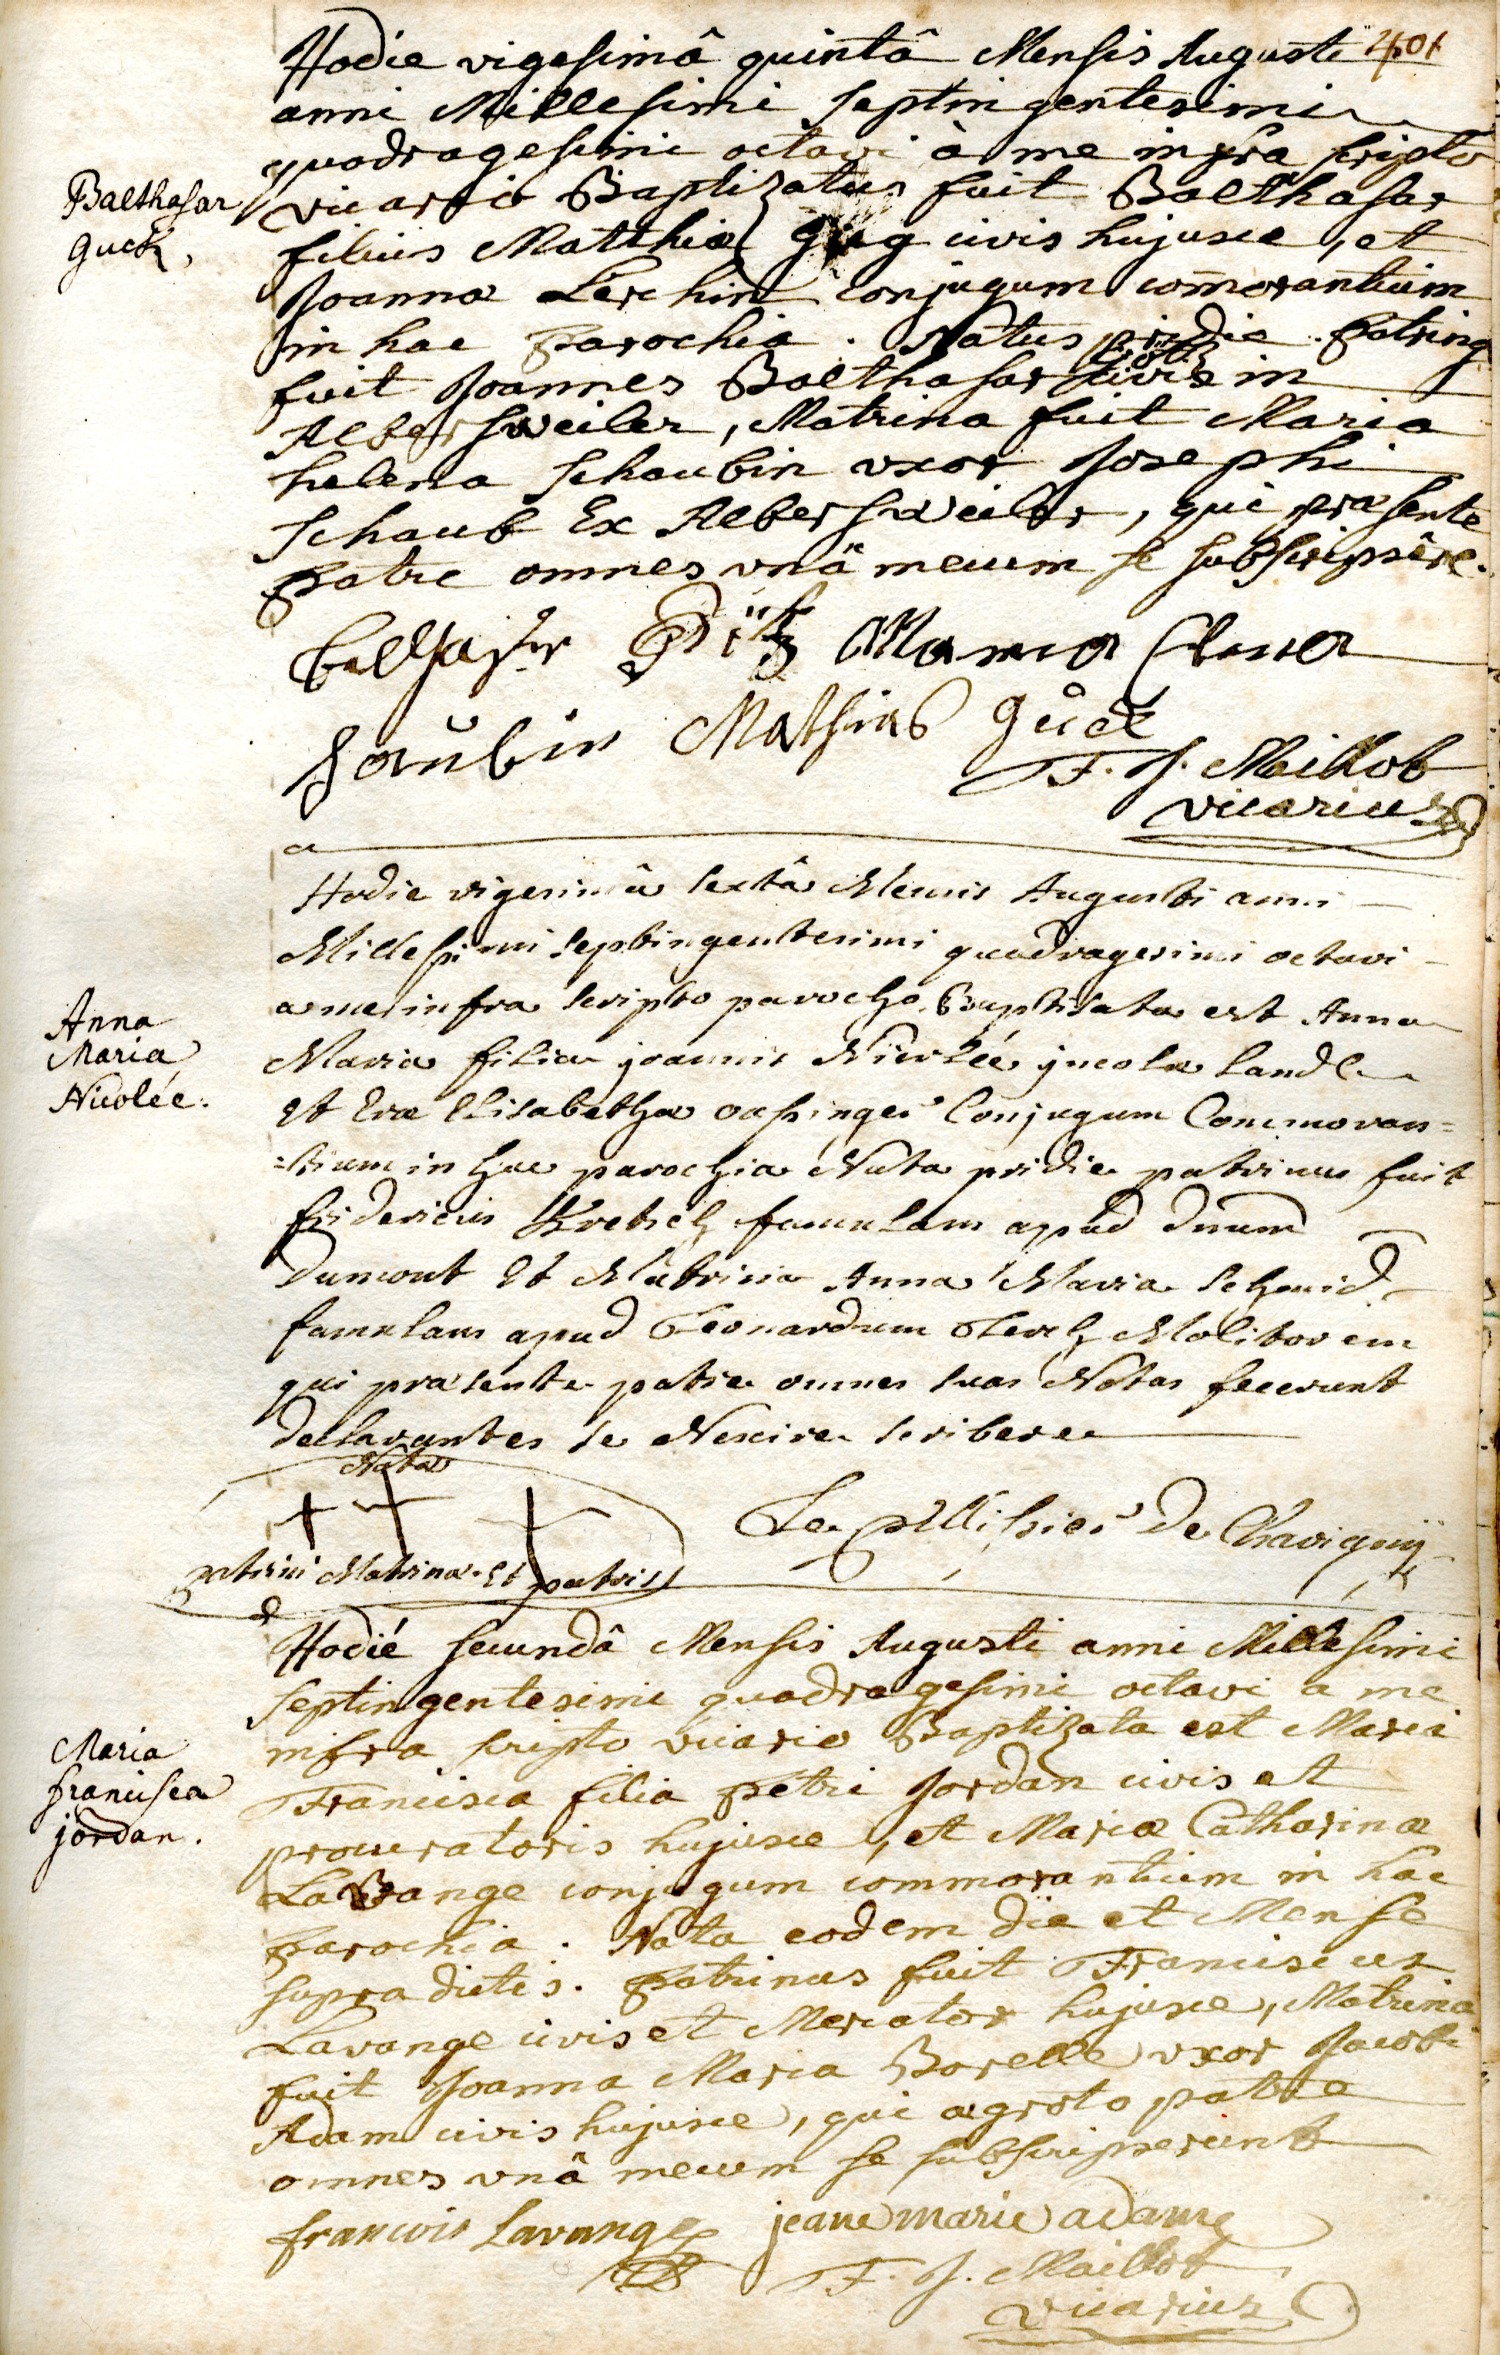 401
Hodie vigesimâ quintâ Mensis Augusti
anni Millesimi septingentesimi
quadragesimi octavi à me infra scripto
Balthasar
Guck,
vicario Baptizatus fuit Balthasar
filius Matthiæ Gug civis hujusce, et
Joannæ Lerchin conjugum com̄orantium
in hac parochia. Natus pridie. Patrinus
fuit Joannes Balthasar civis in
Albersweiler, Matrina fuit Maria
helena Schaubin uxor Josephi
Schaub Ex Albersweiler, qui præsente
patre omnes unâ mecum se subscripsêre.
Maria
Mathias Guck
F. J. Maillot
vicarius
Hodie vigesimâ sextâ Mensis Augusti anni
Millesimi septingentesimi quadragesimi octavi
a me infra scripto parocho Baptisata est Anna
Anna
Maria
Nicolée.
Maria filia joannis Nicolée incolæ
et Evæ Elisabethæ conjugum Commoran=
=tium in hac parochia Nata pridie patrinus fuit
fridericus famulans apud dnum
Dumont Et Matrina Anna Maria Schmid
famulans apud Leonardum Lerch Molitorem
qui præsente patre omnes suas Notas fecerunt
declarantes se Nescire scribere
Nota
patrini Matrinæ Et patris
Le de Chavigny
Hodié secundâ Mensis Augusti anni Millesimi
septingentesimi quadragesimi octavi a me
infra scripto vicario Baptizata est Maria
Maria
francisca
jordan.
Francisca filia Petri Jordan civis et
procuratoris hujusce, et Mariæ Catharinæ
Lavange conjugum commorantium in hac
parochia. Nata eodem die et Mense
supra dictis. Patrinus fuit Franciscus
Lavange civis et Mercator hujusce, Matrina
fuit Joanna Maria Borelle uxor Jacobi
Adam civis hujusce, qui ægroto patre
omnes unâ mecum se subscripserunt
francois Lavange jeane marie adame
F. J. Maillot
vicarius